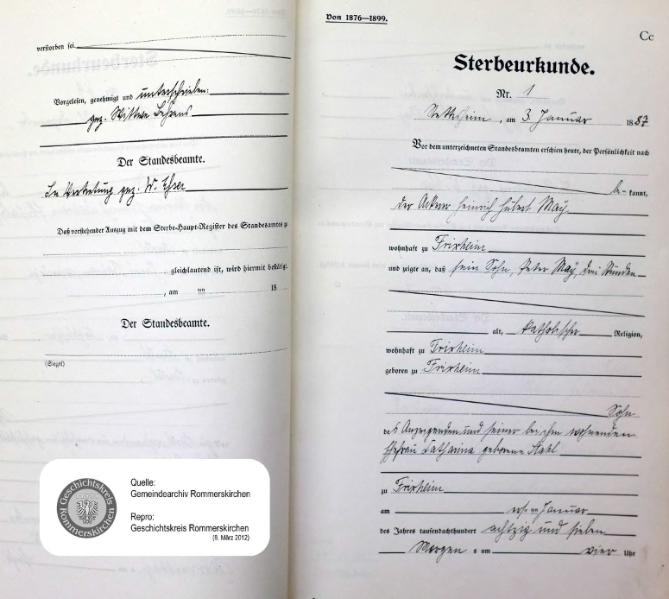 verstorben sei
Vorgelesen, genehmigt und unterschrieben:
gez. Behrens
Der Standesbeamte.
In Vertretung gez. W. Esser
Daß vorstehender Auszug mit dem Sterbe-Haupt-Register des Standesamts
gleichlautend ist, wird hiermit bestätigt.
, am 18
Der Standesbeamte.
(Siegel)
GESCHICHTSKREIS ROMMERSKIRCHEN
Quelle:
Gemeindearchiv Rommerskirchen
Repro:
Geschichtskreis Rommerskirchen
(8. März 2012)
Von 1876—1899.
Cc
Sterbeurkunde.
Nr. 1
, am 3 Januar 1887
Vor dem unterzeichneten Standesbeamten erschien heute, der Persönlichkeit nach
be- kannt,
der Ackerer Heinrich Hubert May
wohnhaft zu Frixheim
und zeigte an, daß sein Sohn, Peter May, drei Stunden
alt, katholischer Religion,
wohnhaft zu Frixheim
geboren zu Frixheim
Sohn
des Anzeigenden und seiner bei ihm wohnenden
Ehefrau Katharina geborene Stahl
zu Frixheim
am Januar
des Jahres tausendachthundert achtzig und sieben
Morgens um vier Uhr